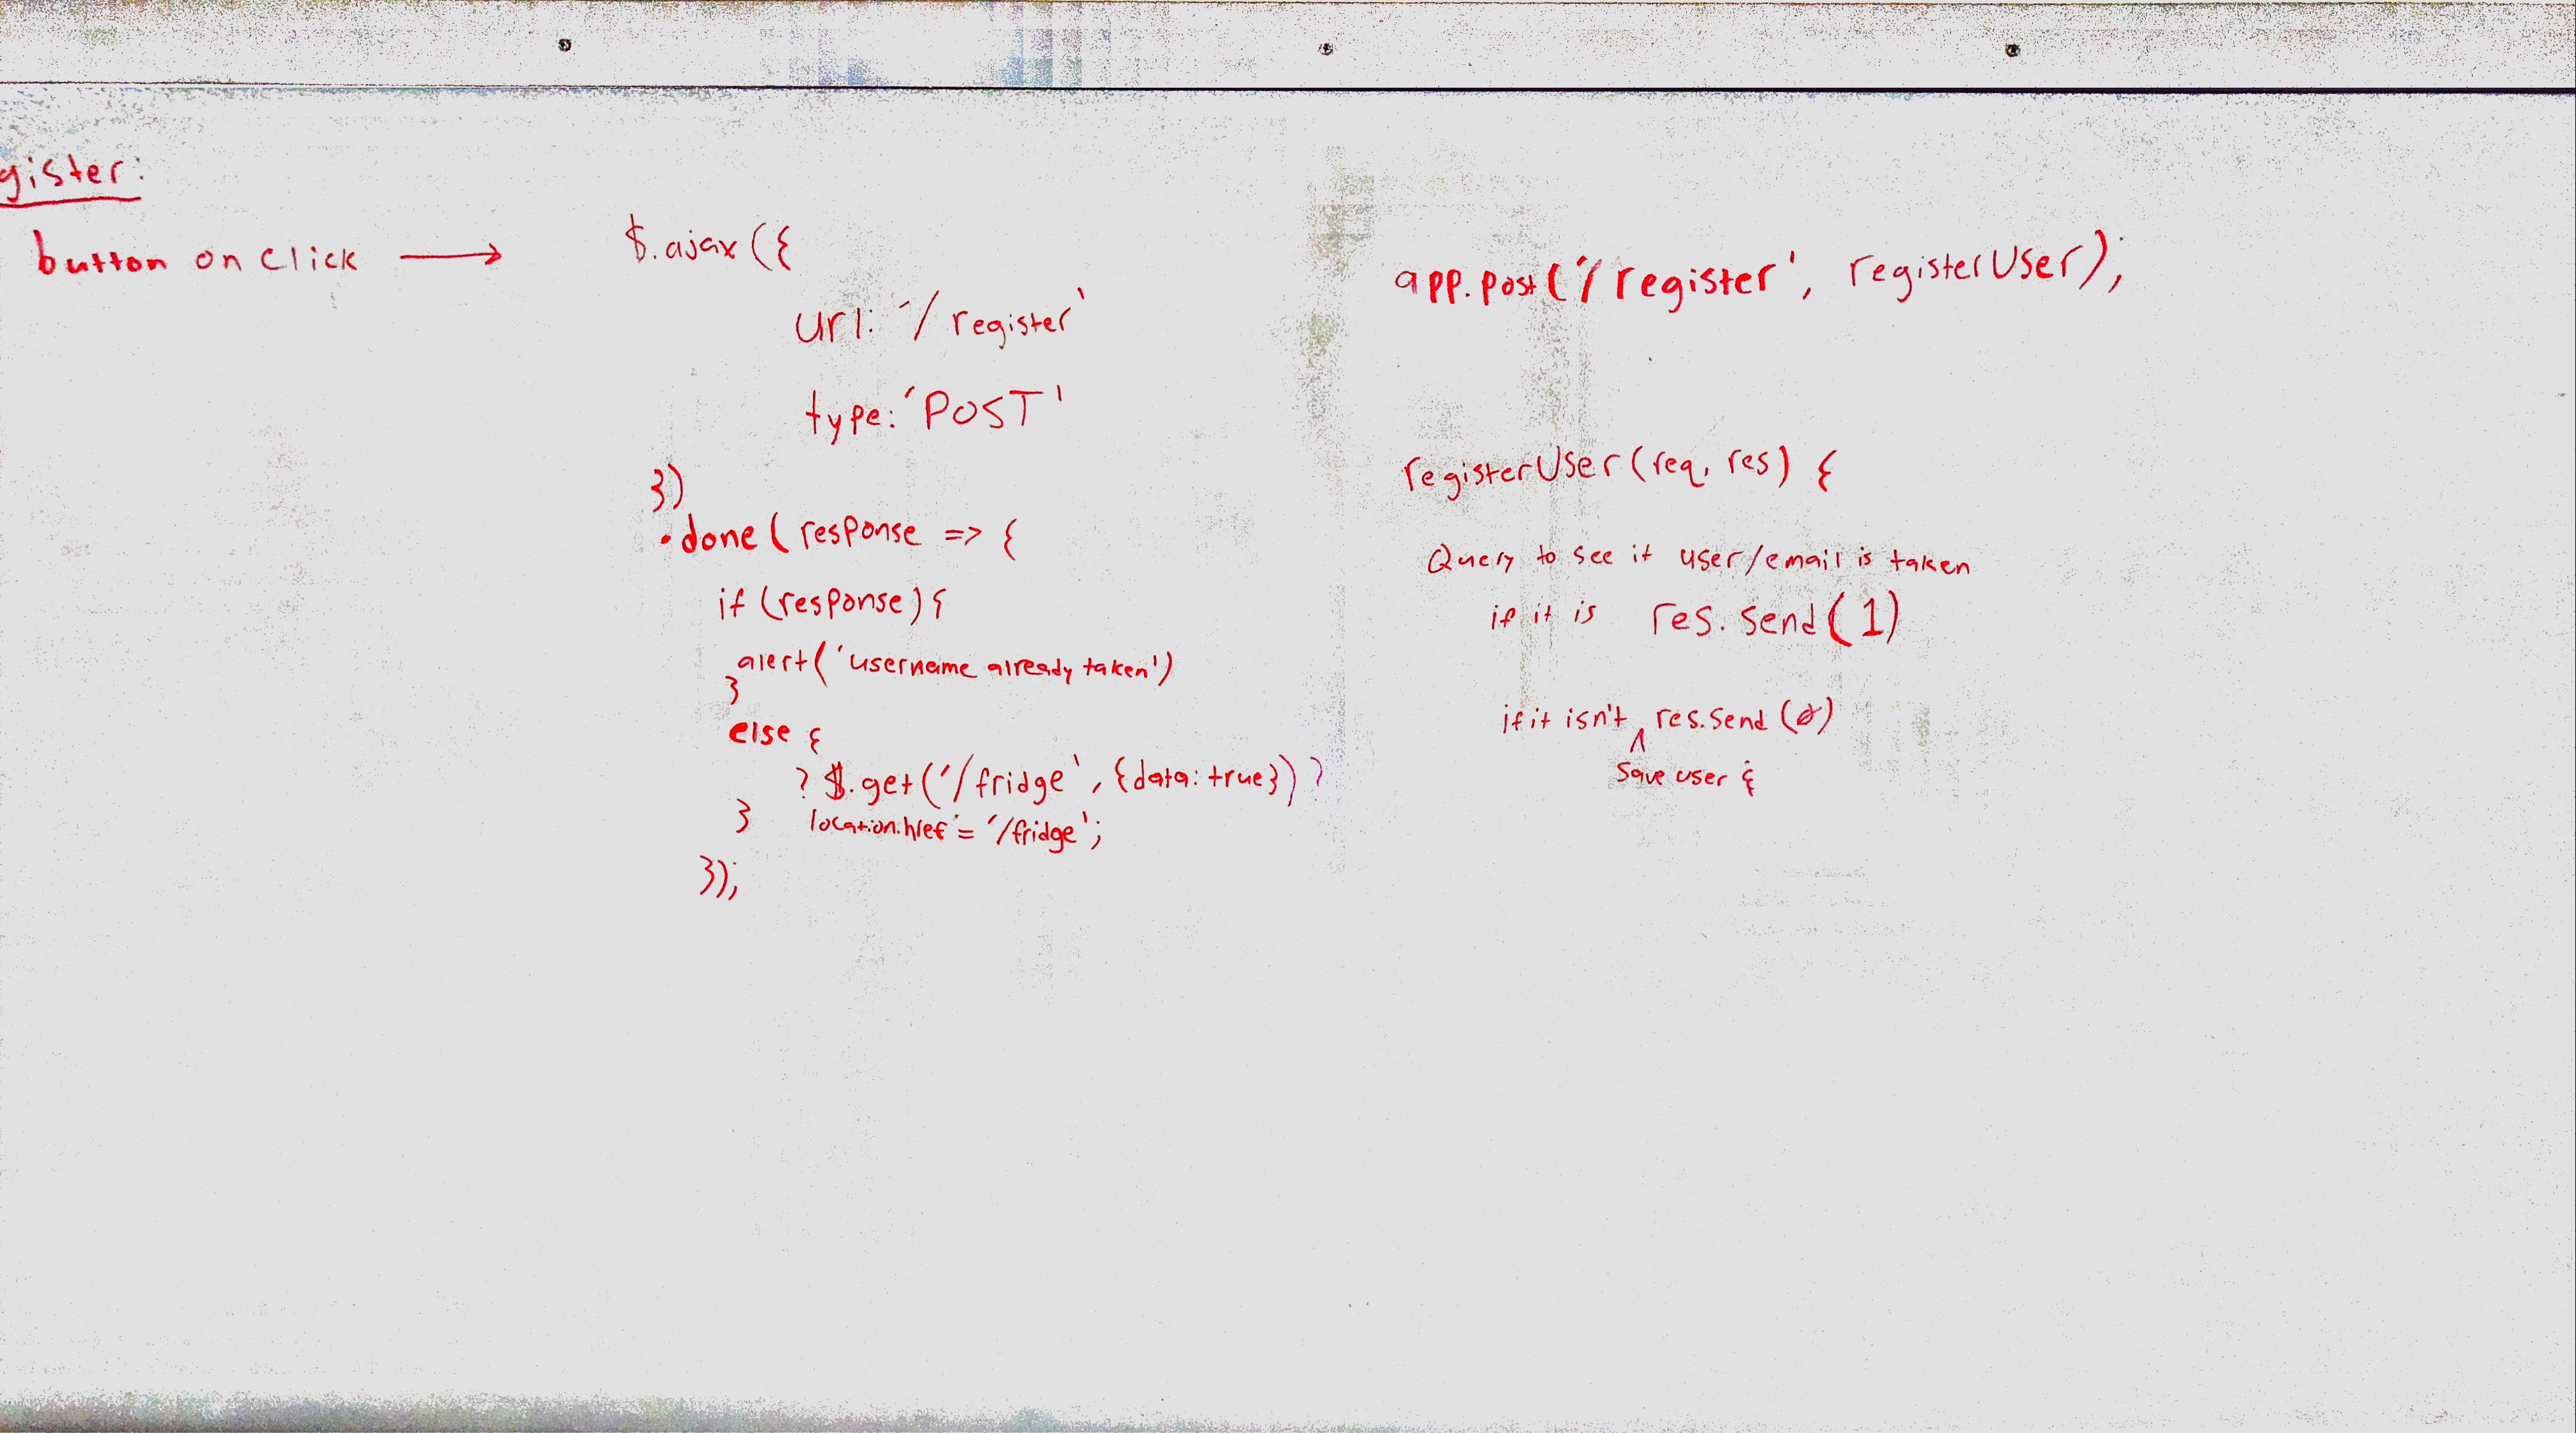 gister:
button on Click →
$.ajax({
url: '/register'
type: 'POST'
})
.done(response => {
if (response) {
alert('username already taken')
}
else {
? $.get('/fridge', {data: true}) ?
} location.href = '/fridge';
});
app.post('/register', registerUser);
registerUser(req, res) {
Query to see if user/email is taken
if it is res.send(1)
if it isn't ^ res.send(0)
Save user &